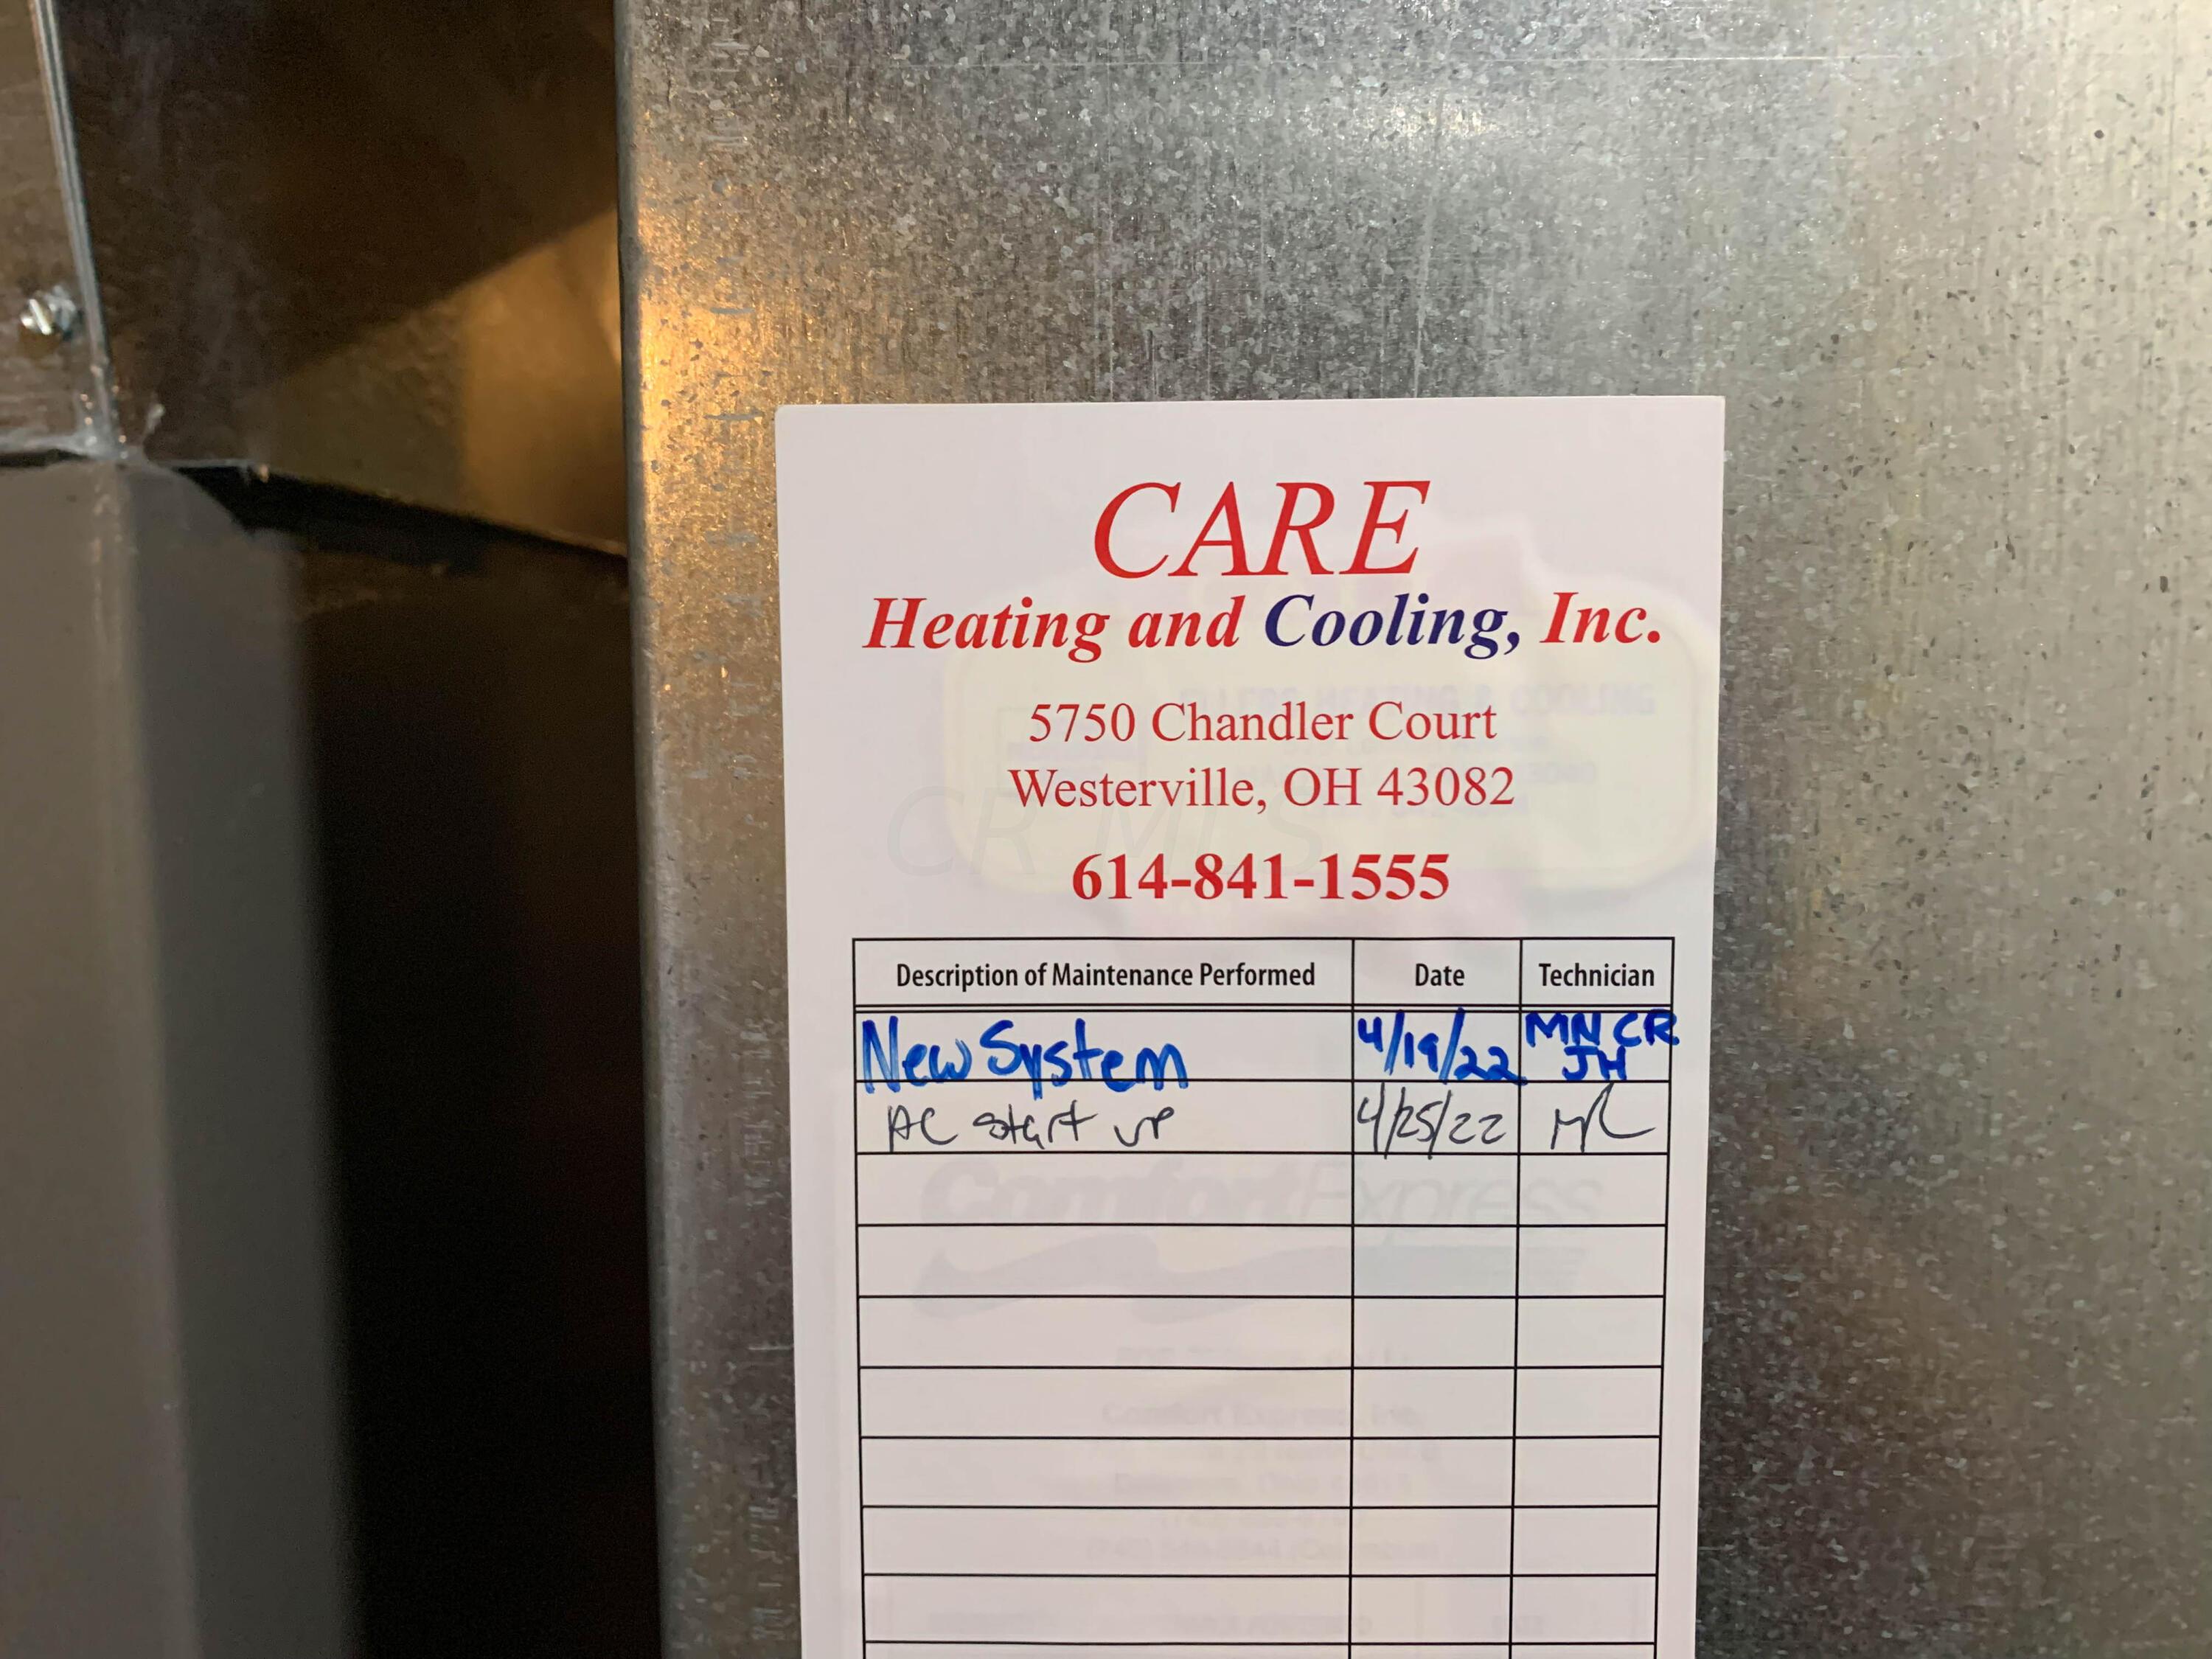 CARE
Heating and Cooling, Inc.
5750 Chandler Court
Westerville, OH 43082
CR MLS
614-841-1555
Description of Maintenance Performed Date Technician
New System 4/19/22 MN CR
JH
AC start up 4/25/22
HEATING & COOLING
ComfortExpress
Comfort Express, Inc.